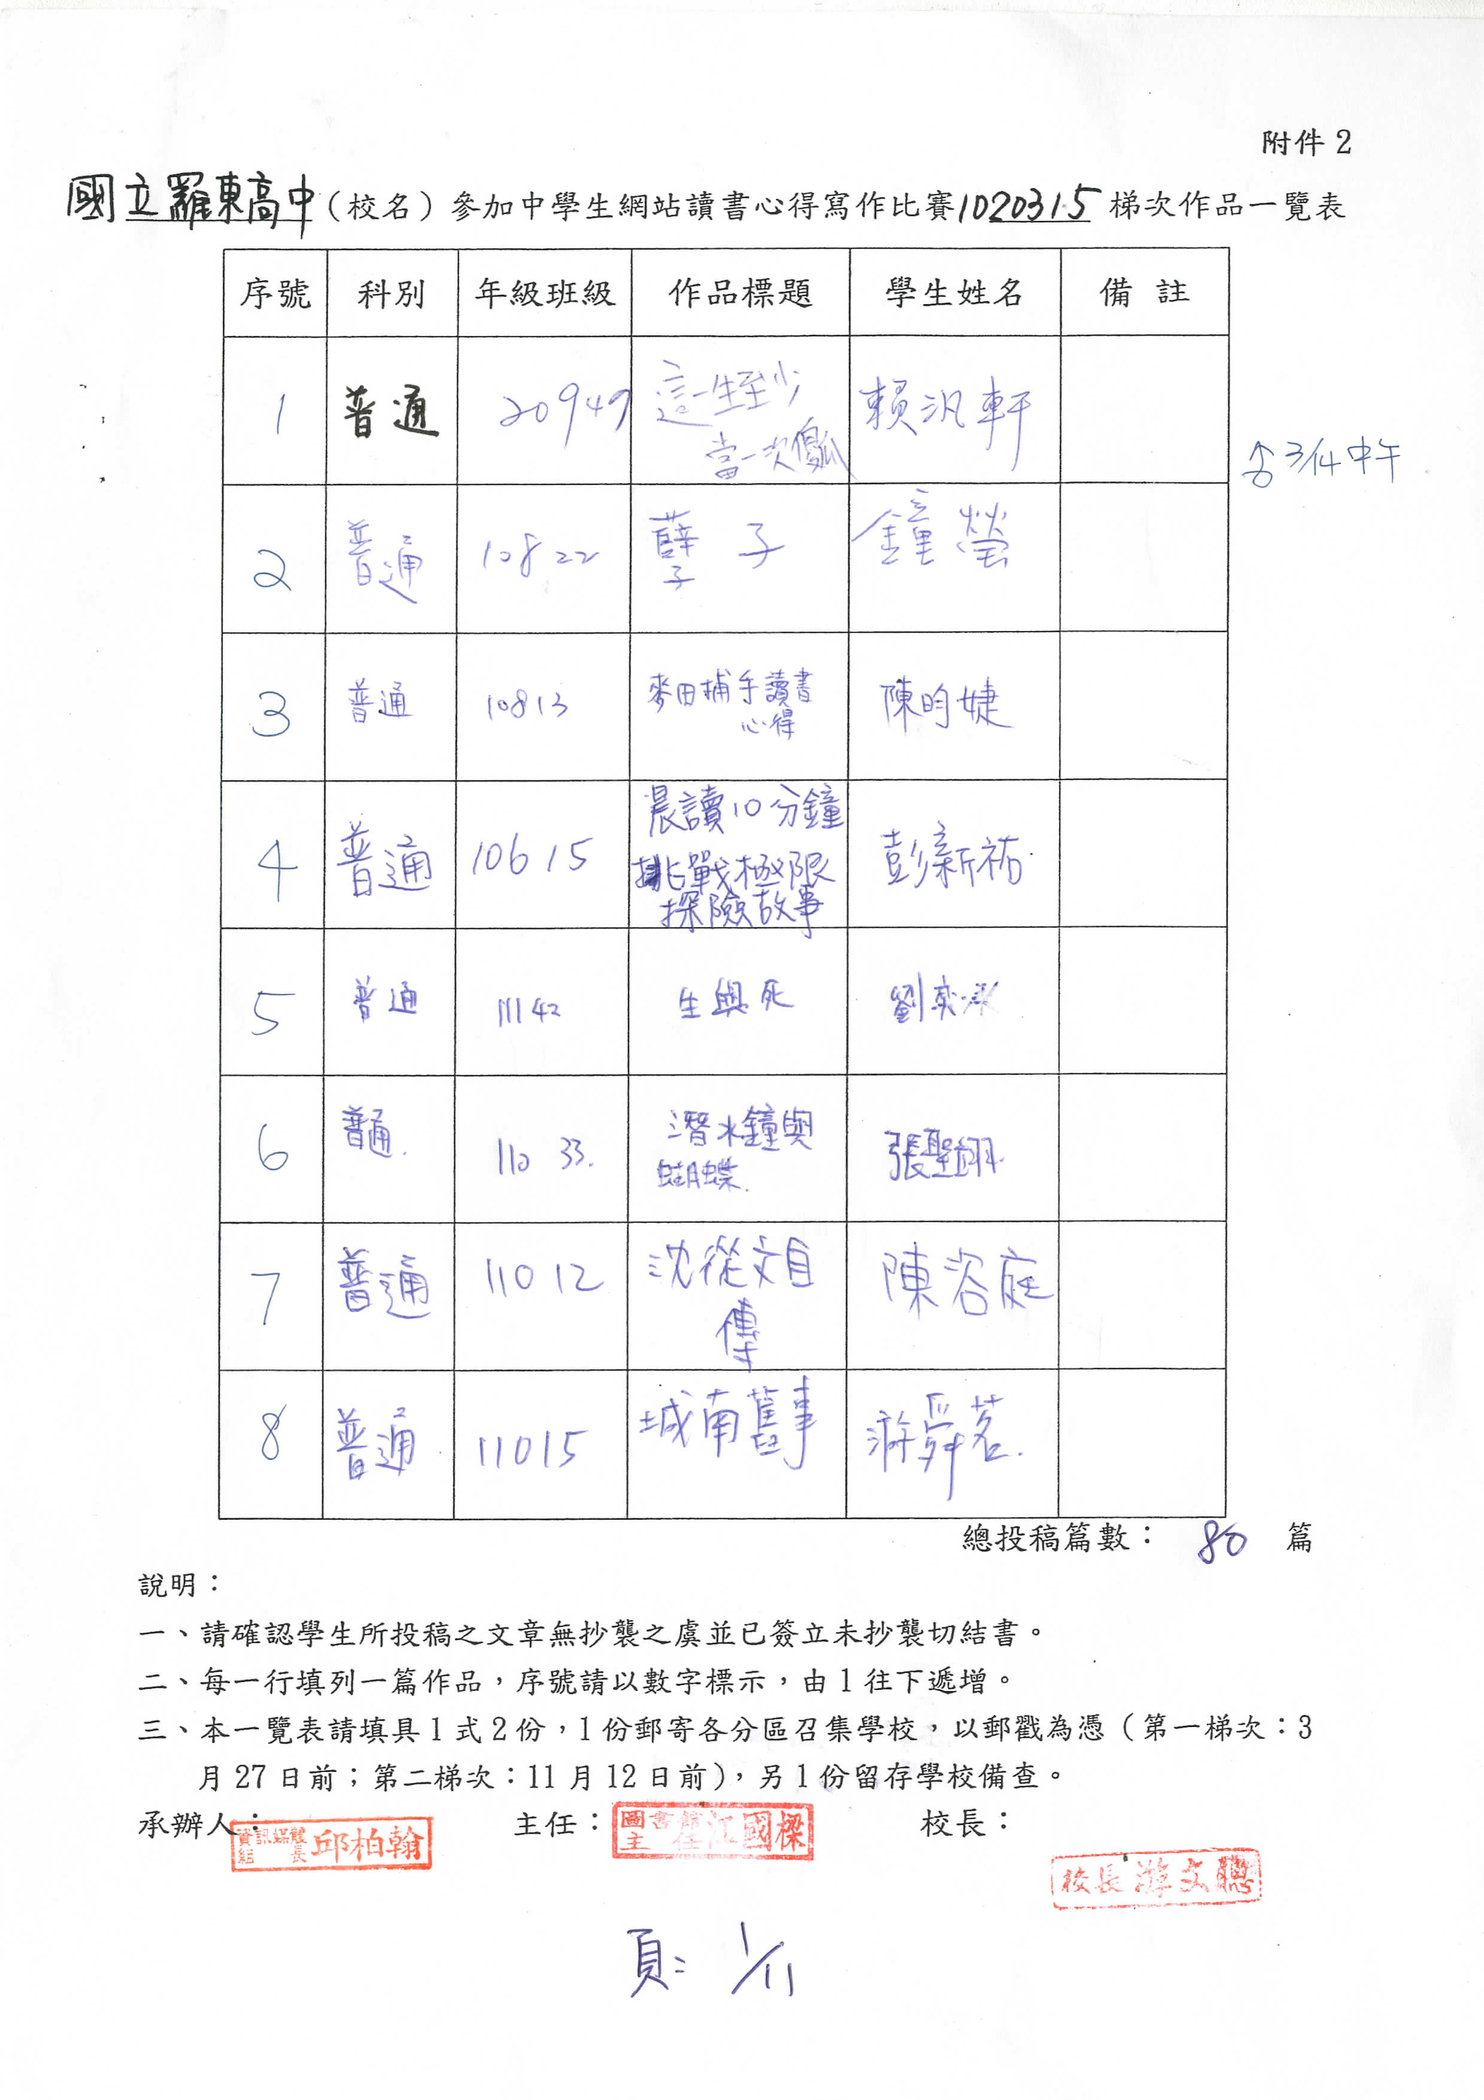 附件 2
國立羅東高中（校名）參加中學生網站讀書心得寫作比賽1020315梯次作品一覽表
序號 科別 年級班級 作品標題 學生姓名 備 註
1 普通 20947 這一生至少 賴汎軒
當一次傻瓜
3/14 中午
2 普通 10822 孽子 鐘瑩
3 普通 10813 麥田捕手讀書 陳昀婕
心得
4 普通 10615 晨讀10分鐘 彭新祐
挑戰極限
探險故事
5 普通 11142 生與死 劉奕
6 普通. 11033. 潛水鐘與 張聖翊.
蝴蝶.
7 普通 11012 沈從文自 陳浴庭
傳
8 普通 11015 城南舊事 游舜茗.
總投稿篇數： 80 篇
說明：
一、請確認學生所投稿之文章無抄襲之虞並已簽立未抄襲切結書。
二、每一行填列一篇作品，序號請以數字標示，由 1 往下遞增。
三、本一覽表請填具 1 式 2 份，1 份郵寄各分區召集學校，以郵戳為憑（第一梯次：3
月 27 日前；第二梯次：11 月 12 日前），另 1 份留存學校備查。
承辦人： 主任： 校長：
資訊媒體組長 邱柏翰 圖書館主任 江國樑
校長 游文聰
頁: 1/11